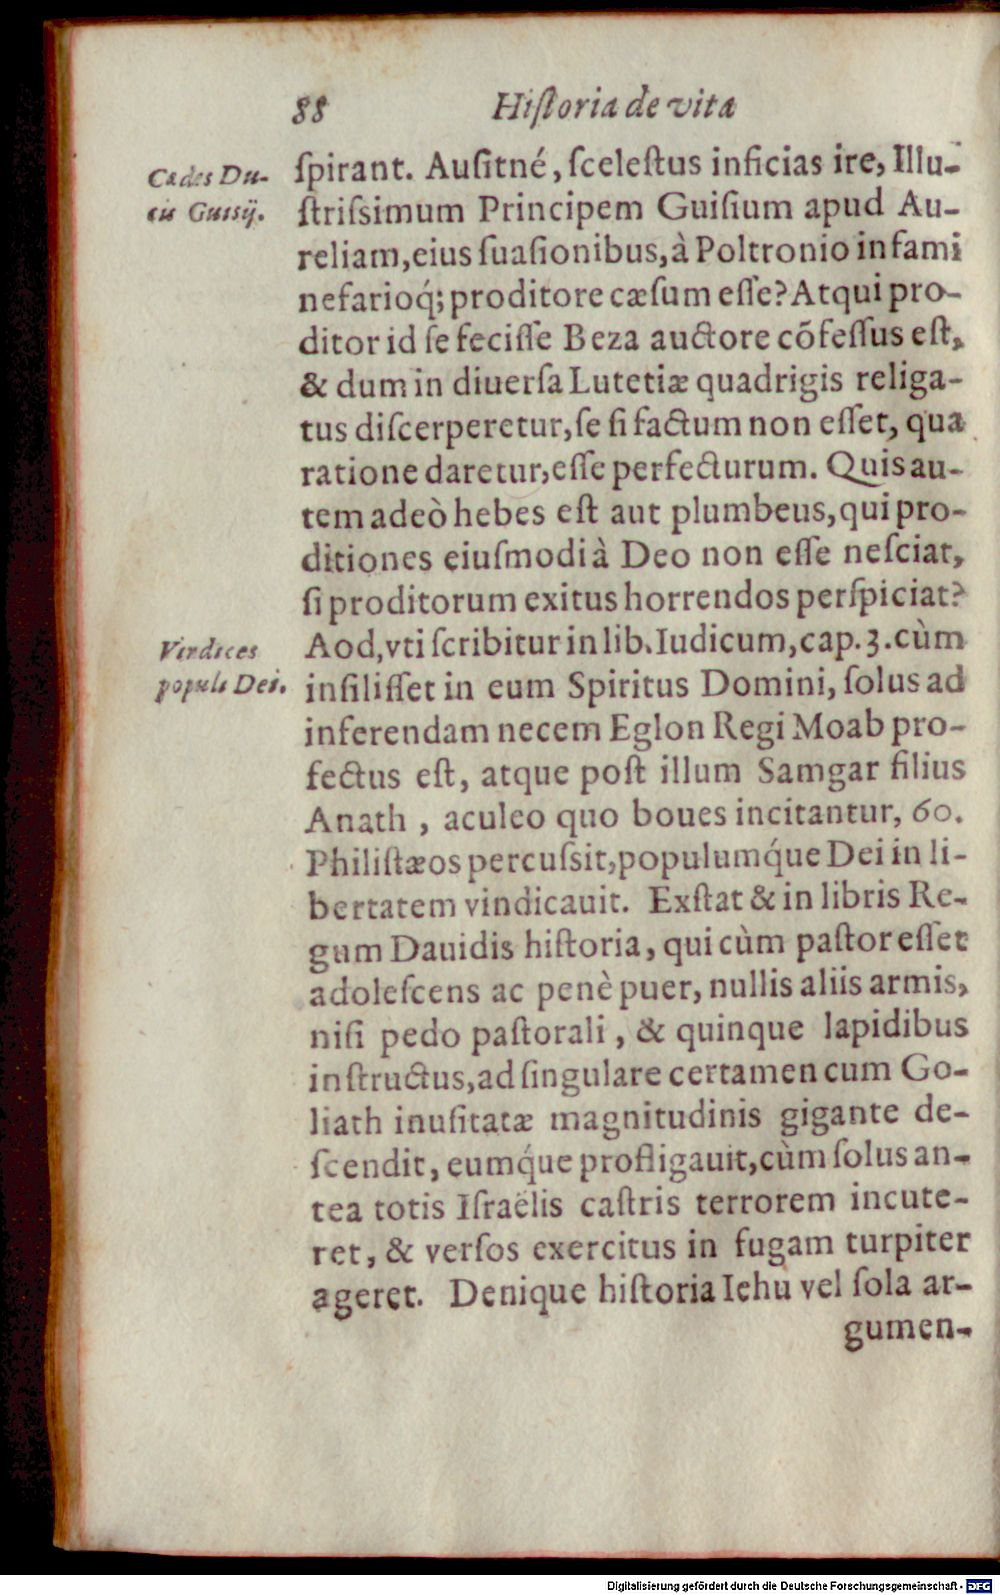 88 Hiſtoria de vita
Cædes Du-
cis Guisij.
ſpirant. Auſitné, ſceleſtus inficias ire, Illu-
ſtriſsimum Principem Guiſium apud Au-
reliam, eius ſuaſionibus, à Poltronio infami
nefarioq́; proditore cæſum eſſe? Atqui pro-
ditor id ſe feciſſe Beza auctore cõfeſſus eſt,
& dum in diuerſa Lutetiæ quadrigis religa-
tus diſcerperetur, ſe ſi factum non eſſet, qua
ratione daretur, eſſe perfecturum. Quis au-
tem adeò hebes eſt aut plumbeus, qui pro-
ditiones eiuſmodi à Deo non eſſe neſciat,
ſi proditorum exitus horrendos perſpiciat?
Vindices
populi Dei.
Aod, vti ſcribitur in lib. Iudicum, cap. 3. cùm
inſiliſſet in eum Spiritus Domini, ſolus ad
inferendam necem Eglon Regi Moab pro-
fectus eſt, atque poſt illum Samgar filius
Anath , aculeo quo boues incitantur, 60.
Philiſtæos percuſsit, populumq́ue Dei in li-
bertatem vindicauit. Exſtat & in libris Re-
gum Dauidis hiſtoria, qui cùm paſtor eſſet
adoleſcens ac penè puer, nullis aliis armis,
niſi pedo paſtorali, & quinque lapidibus
inſtructus, ad ſingulare certamen cum Go-
liath inuſitatæ magnitudinis gigante de-
ſcendit, eumq́ue profligauit, cùm ſolus an-
tea totis Iſraëlis caſtris terrorem incute-
ret, & verſos exercitus in fugam turpiter
ageret. Denique hiſtoria Iehu vel ſola ar-
gumen-
Digitalisierung gefördert durch die Deutsche Forschungsgemeinschaft - DFG